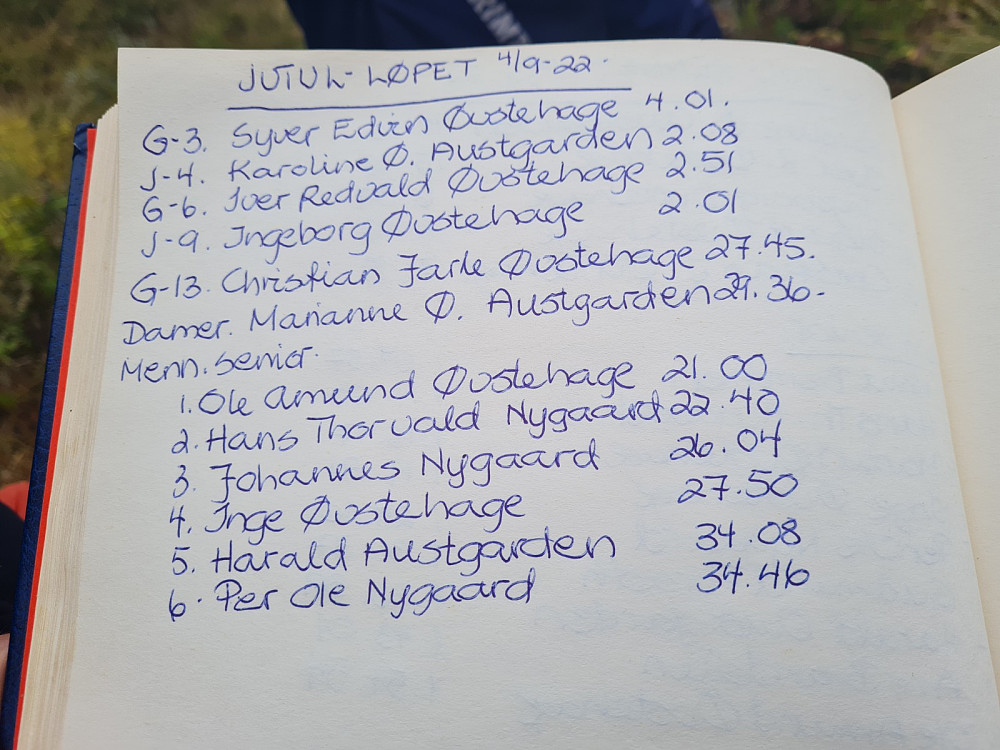 JUTUL-LØPET 4/9-22.
G-3. Syver Edvin Øvstehage 4.01.
J-4. Karoline Ø. Austgarden 2.08
G-6. Iver Redvald Øvstehage 2.51
J-9. Ingeborg Øvstehage 2.01
G-13. Christian Jarle Øvstehage 27.45.
Damer. Marianne Ø. Austgarden 29.36.
Menn. senior.
1. Ole Amund Øvstehage 21.00
2. Hans Thorvald Nygaard 22.40
3. Johannes Nygaard 26.04
4. Inge Øvstehage 27.50
5. Harald Austgarden 34.08
6. Per Ole Nygaard 34.46